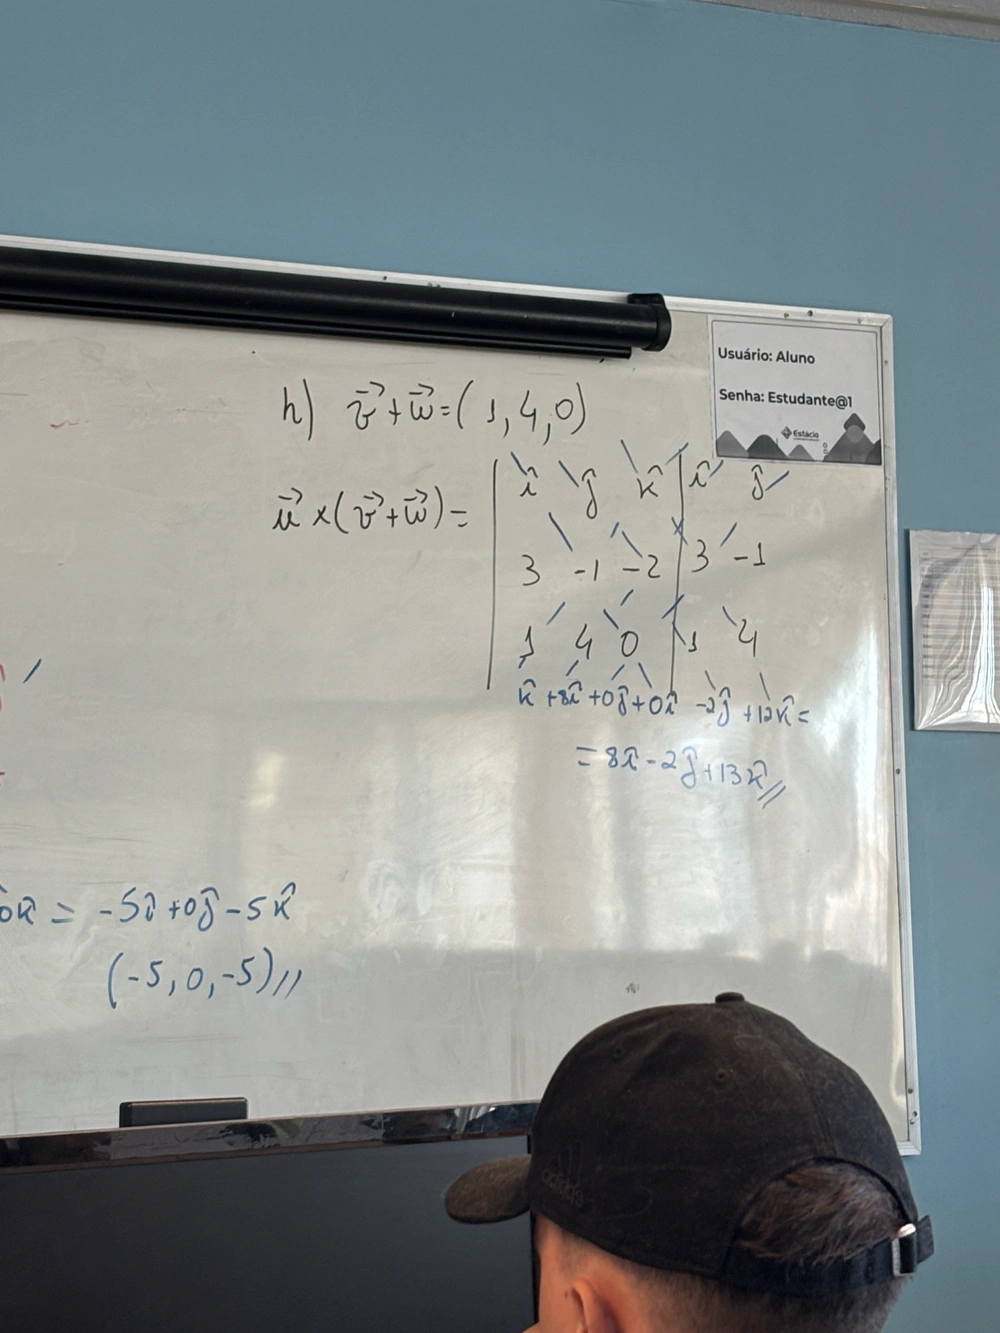 Usuário: Aluno
Senha: Estudante@1
Estácio
h) v⃗+w⃗=(1,4,0)
u⃗ x(v⃗+w⃗)= | î ĵ k̂ | î ĵ
3 -1 -2 | 3 -1
1 4 0 | 1 4
k̂ +8î +0ĵ +0î -2ĵ +12k̂ =
= 8î - 2ĵ + 13k̂ //
k̂ = -5î +0ĵ -5k̂
(-5, 0, -5) //
adidas